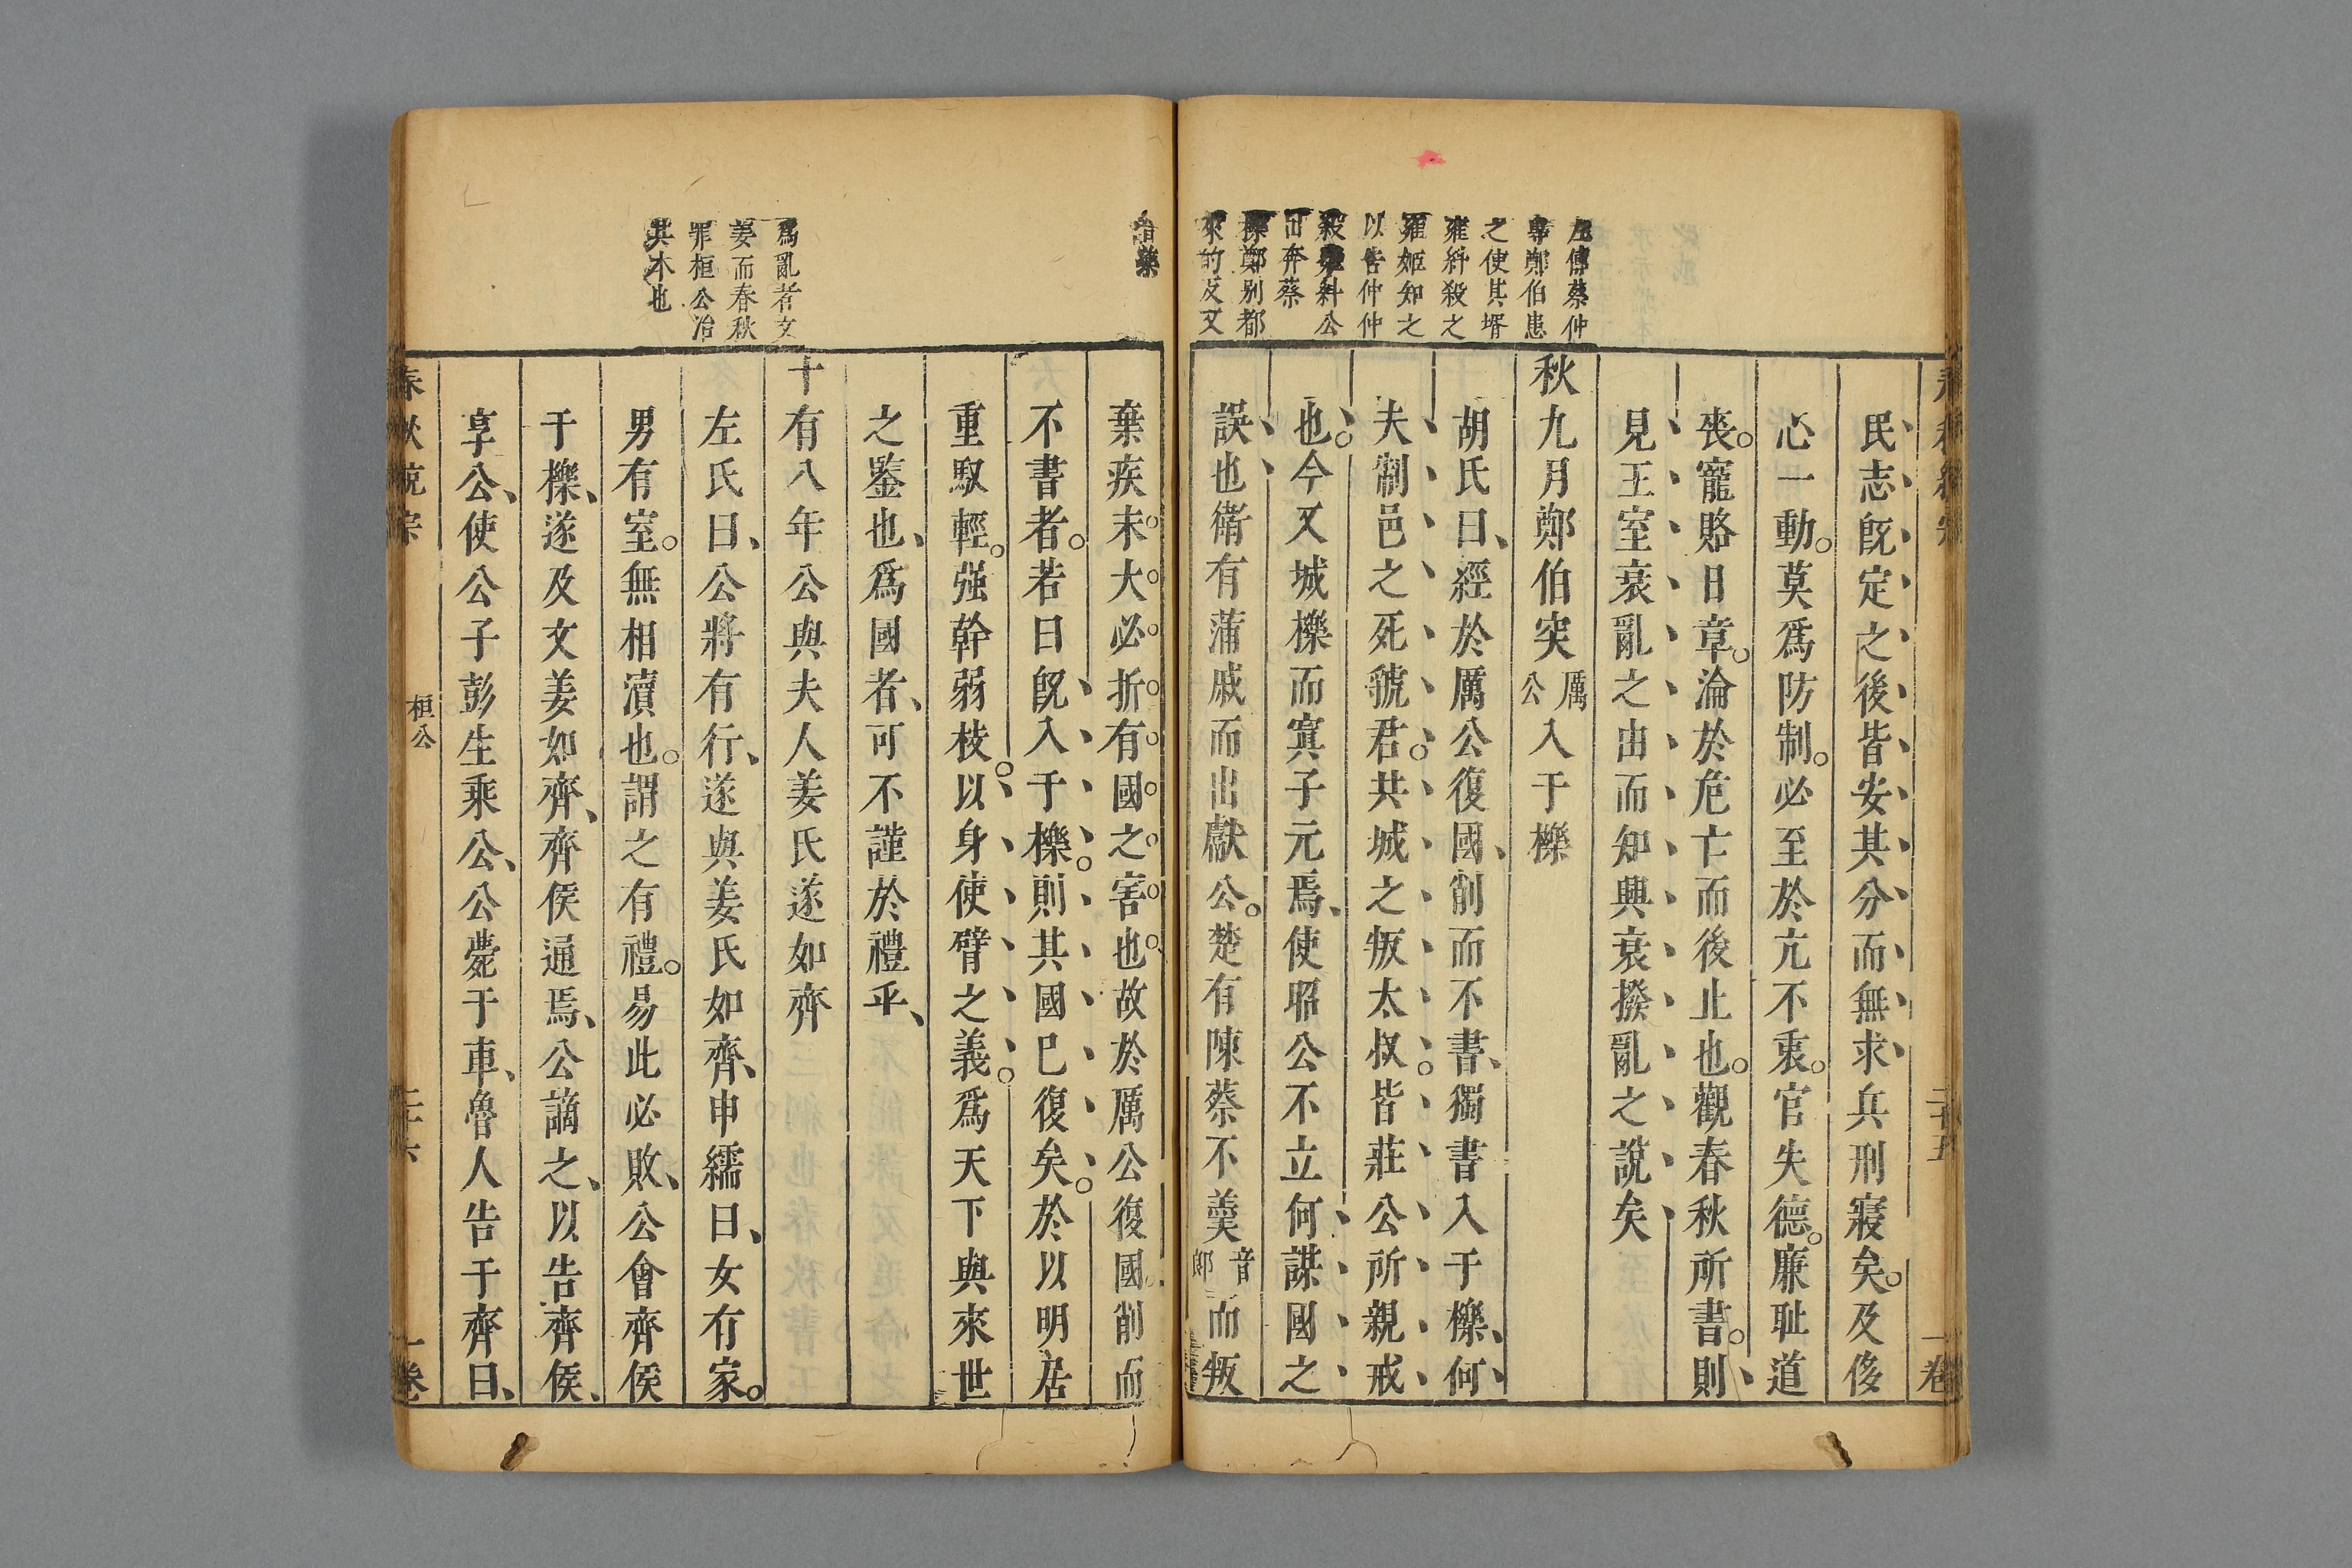 左傳蔡仲
專鄭伯患
之使其壻
雍糾殺之
雍姬知之
以告仲仲
殺雍糾公
出奔蔡
櫟鄭别都
來的反又
音藥
民志旣定之後皆安其分而無求兵刑寢矣。及後
心一動。莫爲防制。必至於亢不衷。官失德。廉耻道
喪。寵賂日章。淪於危亡而後止也。觀春秋所書。則
見王室衰亂之由而知興衰撥亂之說矣
秋九月鄭伯突厲公入于櫟
胡氏曰、經於厲公復國、削而不書、獨書入于櫟、何
夫制邑之死虢君。共城之叛太叔。皆莊公所親戒
也。今又城櫟而寘子元焉、使昭公不立何謀國之
誤也衛有蒲戚而出獻公。楚有陳蔡不羹音郎而叛
棄疾末大必折有國之害也故於厲公復國削而
不書者。若曰旣入于櫟。則其國已復矣。於以明居
重馭輕。强幹弱枝。以身使臂之義。爲天下與來世
之鑒也、爲國者、可不謹於禮乎、
爲亂者文
姜而春秋
罪桓公治
其本也
十有八年公與夫人姜氏遂如齊
左氏曰、公將有行、遂與姜氏如齊、申繻曰、女有家。
男有室。無相瀆也。謂之有禮。易此必敗、公會齊侯
于櫟、遂及文姜如齊、齊侯通焉、公謫之、以告齊侯、
享公、使公子彭生乘公、公薨于車、魯人告于齊曰、
桓公
二十六
一卷